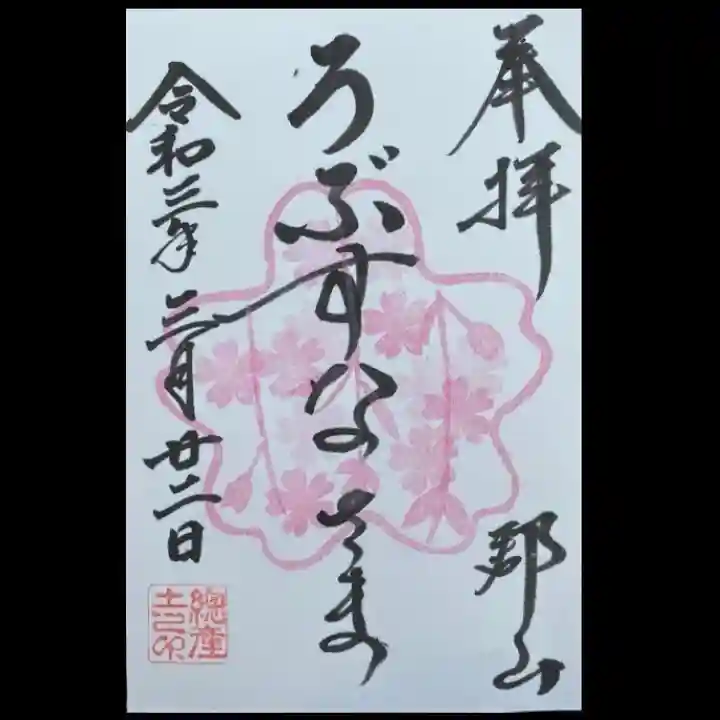 奉拝 郡山
うぶすなさま
令和三年三月廿二日
總産
土印